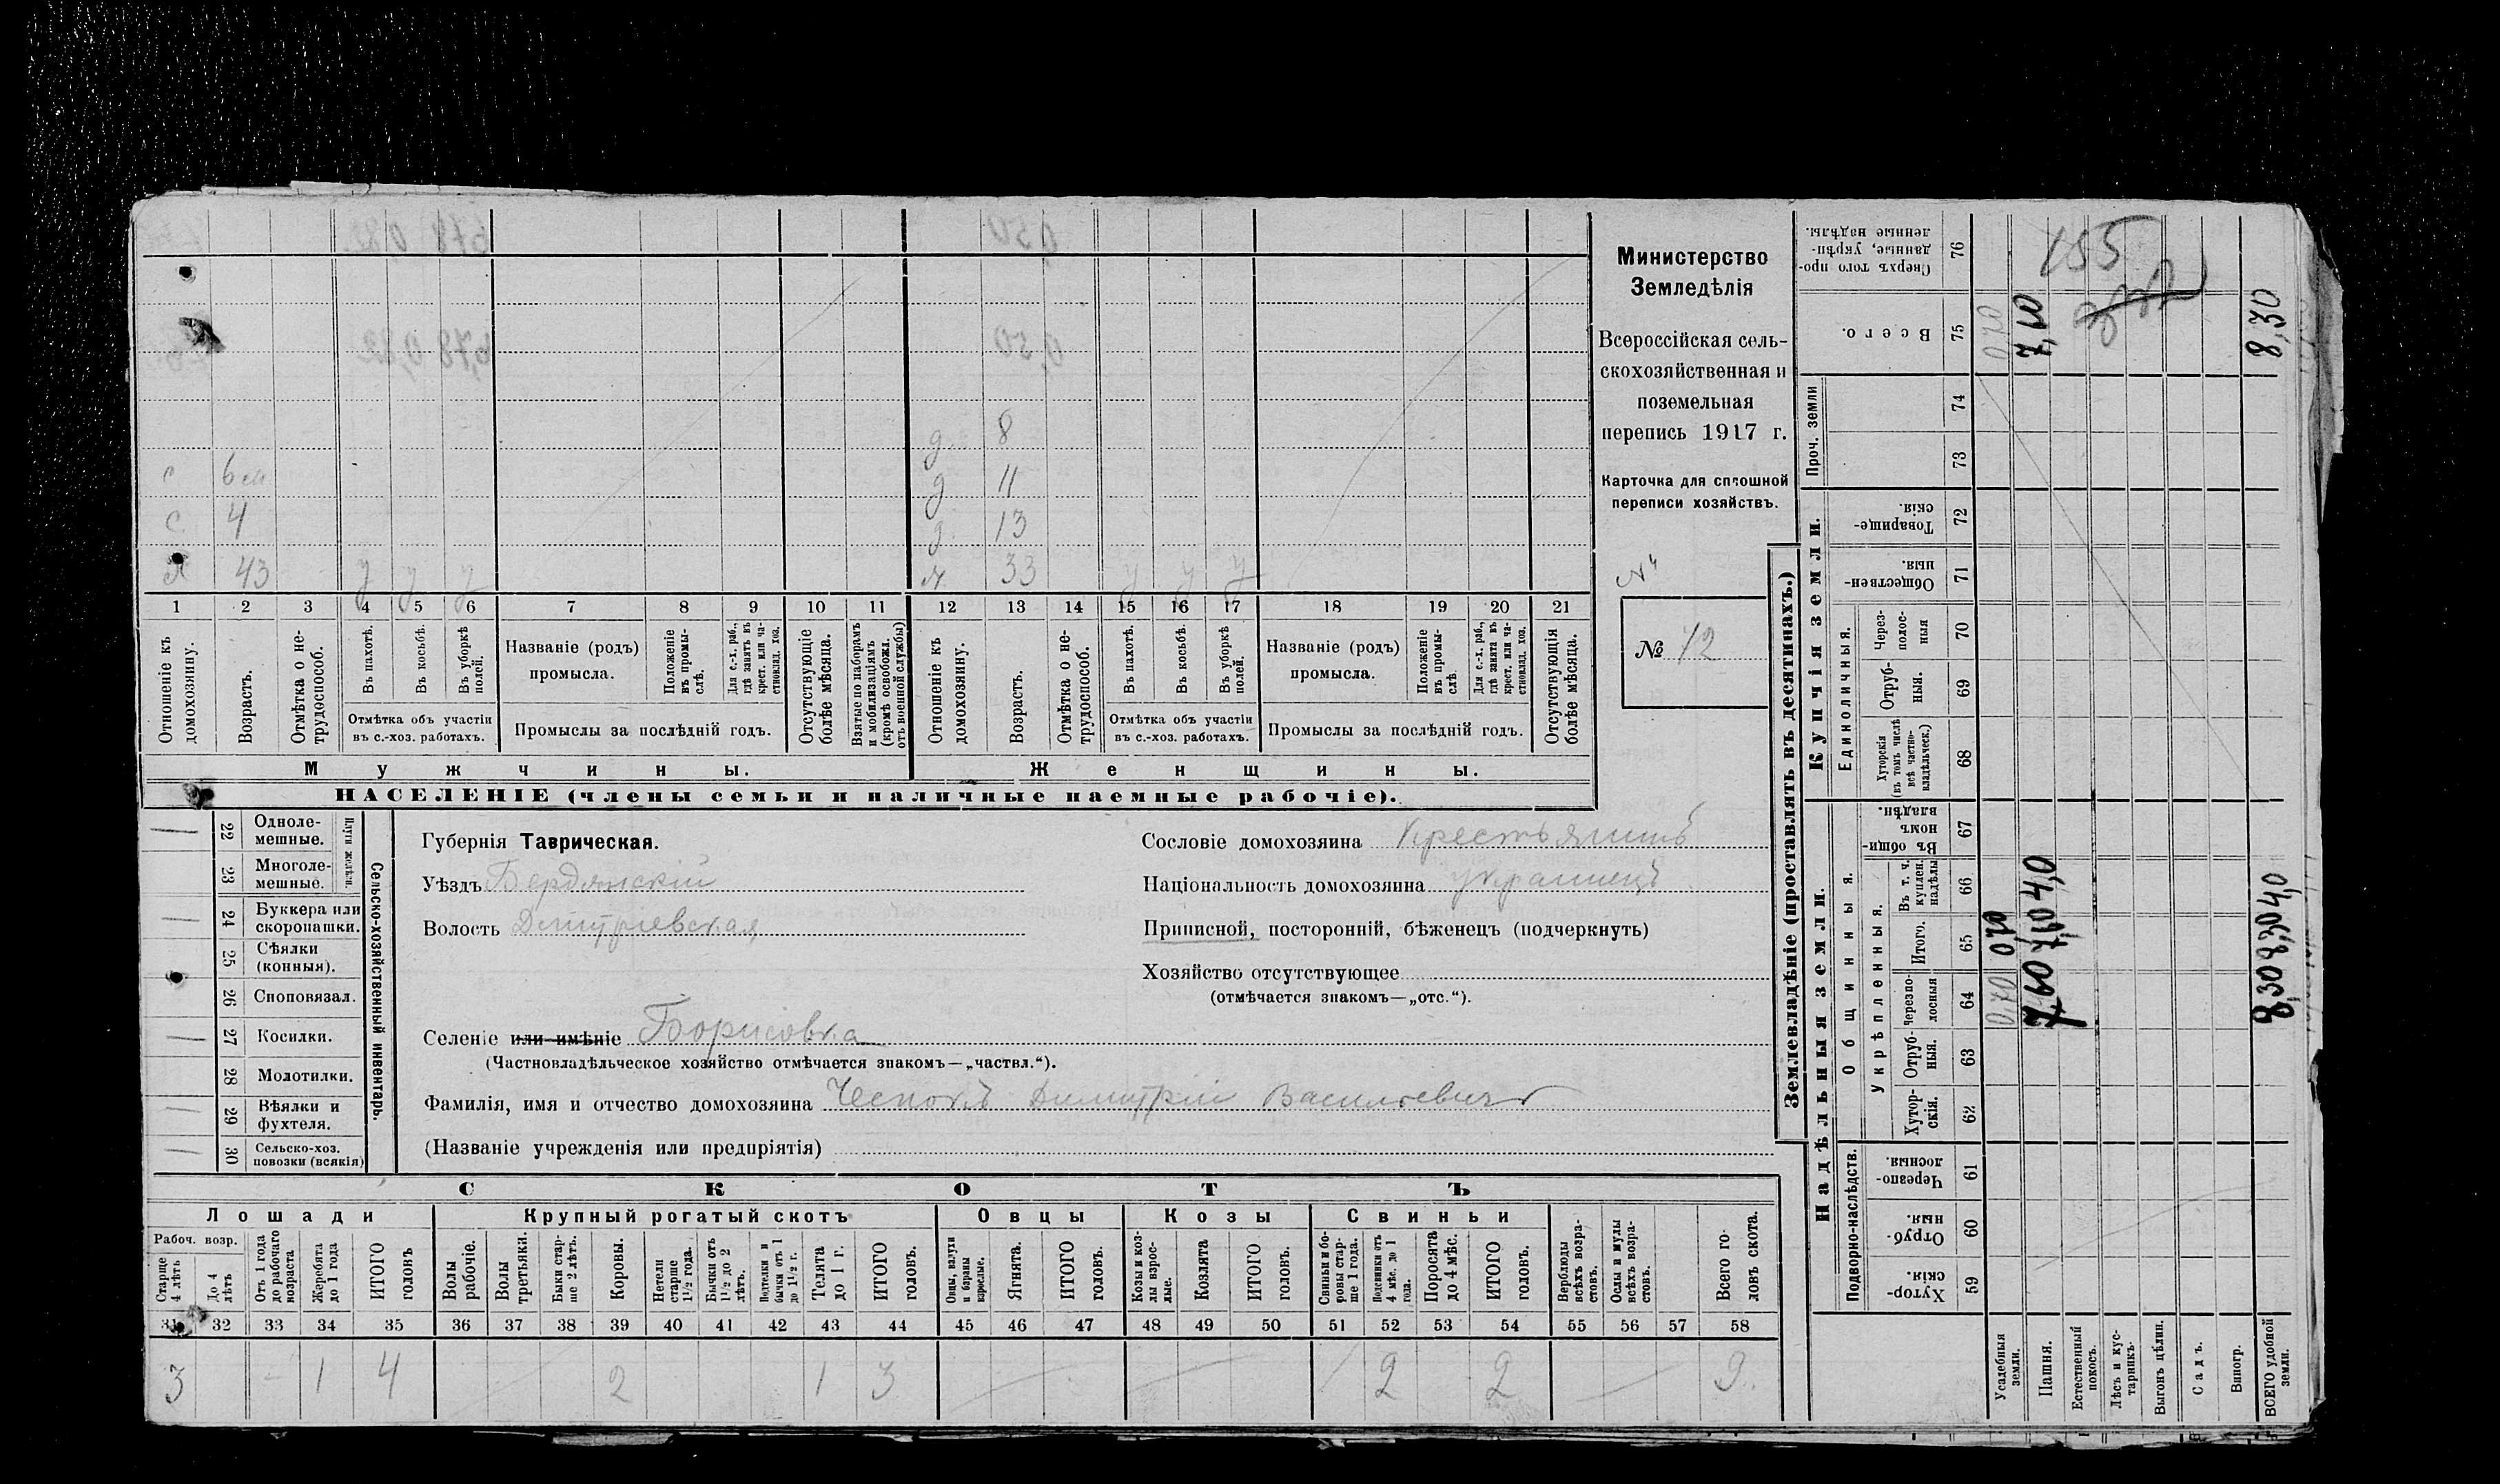 Министерство
Земледѣлія
Всероссійская сель-
скохозяйственная и
поземельная
перепись 1917 г.
Карточка для сплошной
переписи хозяйствъ.
№ 12
155
д 8
с 6 м д 11
с 4 д 13
Я 43 у у у ж 33 у у у
1 2 3 4 5 6 7 8 9 10 11 12 13 14 15 16 17 18 19 20 21
Отношеніе къ домохозяину.
Возрастъ.
Отмѣтка о не-трудоспособ.
Въ пахотѣ.
Въ косьбѣ.
Въ уборкѣ полей.
Отмѣтка объ участіи
въ с.-хоз. работахъ.
Названіе (родъ)
промысла.
Положеніе въ промы-слѣ.
Для с.-х. раб., гдѣ занятъ въ крест. или ча-стновлад. хоз.
Промыслы за послѣдній годъ.
Отсутствующіе болѣе мѣсяца.
Взятые по наборамъ и мобилизаціямъ (кромѣ освобожд. отъ военной службы)
Отношеніе къ домохозяину.
Возрастъ.
Отмѣтка о не-трудоспособ.
Въ пахотѣ.
Въ косьбѣ.
Въ уборкѣ полей.
Отмѣтка объ участіи
въ с.-хоз. работахъ.
Названіе (родъ)
промысла.
Положеніе въ промы-слѣ.
Для с.-х. раб., гдѣ занята въ крест. или ча-стновлад. хоз.
Промыслы за послѣдній годъ.
Отсутствующія болѣе мѣсяца.
Мужчины. Женщины.
НАСЕЛЕНІЕ (члены семьи и наличные наемные рабочіе).
22 Одноле-мешные.
23 Многоле-мешные.
Плуги желѣзн.
24 Буккера или скоропашки.
25 Сѣялки (конныя).
26 Сноповязал.
27 Косилки.
28 Молотилки.
29 Вѣялки и фухтеля.
30 Сельско-хоз. повозки (всякія)
Сельско-хозяйственный инвентарь.
Губернія Таврическая.
Уѣздъ Бердянскій
Волость Дмитріевская
Селеніе или имѣніе Борисовка
(Частновладѣльческое хозяйство отмѣчается знакомъ—„частвл.“).
Фамилія, имя и отчество домохозяина Чеснокъ Димитрій Васильевичъ
(Названіе учрежденія или предпріятія)
Сословіе домохозяина крестьянинъ
Національность домохозяина украинецъ
Приписной, посторонній, бѣженецъ (подчеркнуть)
Хозяйство отсутствующее
(отмѣчается знакомъ—„отс.“).
СКОТЪ
Лошади Крупный рогатый скотъ Овцы Козы Свиньи
Рабоч. возр.
Старше 4 лѣтъ
До 4 лѣтъ
Отъ 1 года до рабочаго возраста
Жеребята до 1 года
ИТОГО головъ
Волы рабочіе.
Волы третьяки.
Быки стар-ше 2 лѣтъ.
Коровы.
Нетели старше 1½ года.
Бычки отъ 1½ до 2 лѣтъ.
Подтелки и бычки отъ 1 до 1½ г.
Телята до 1 г.
ИТОГО головъ.
Овцы, валухи и бараны взрослые.
Ягнята.
ИТОГО головъ.
Козы и коз-лы взрос-лые.
Козлята
ИТОГО головъ.
Свиньи и бо-ровы стар-ше 1 года.
Подсвинки отъ 4 мѣс. до 1 года.
Поросята до 4 мѣс.
ИТОГО головъ.
Верблюды всѣхъ возра-стовъ.
Ослы и мулы всѣхъ возра-стовъ.
Всего го-ловъ скота.
31 32 33 34 35 36 37 38 39 40 41 42 43 44 45 46 47 48 49 50 51 52 53 54 55 56 57 58
3 1 4 2 1 3 2 2 9.
Землевладѣніе (проставлять въ десятинахъ.)
Купчія земли.
Надѣльныя земли.
Сверхъ того про-данные, укрѣп-ленные надѣлы. 76
Всего. 75
Проч. земли 74 73
Товарище-скія. 72
Обществен-ныя. 71
Единоличныя.
Через-полос-ныя 70
Отруб-ныя. 69
Хуторскія (въ томъ числѣ всѣ частно-владѣльческ.) 68
Общинныя.
Въ общи-номъ владѣн. 67
Укрѣпленныя.
Въ т. ч. куплен. надѣлы 66
Итого. 65
Черезпо-лосныя 64
Отруб-ныя. 63
Хутор-скія. 62
Подворно-наслѣдств.
Черезпо-лосныя. 61
Отруб-ныя. 60
Хутор-скія. 59
Усадебныя земли. 0,70 0,70 0,70
Пашня. 7,60 4,0 7,60
Естественный покосъ.
Лѣсъ и кус-тарникъ.
Выгонъ цѣлин.
Садъ.
Виногр.
ВСЕГО удобной земли. 8,30 8,30 4,0 8,30